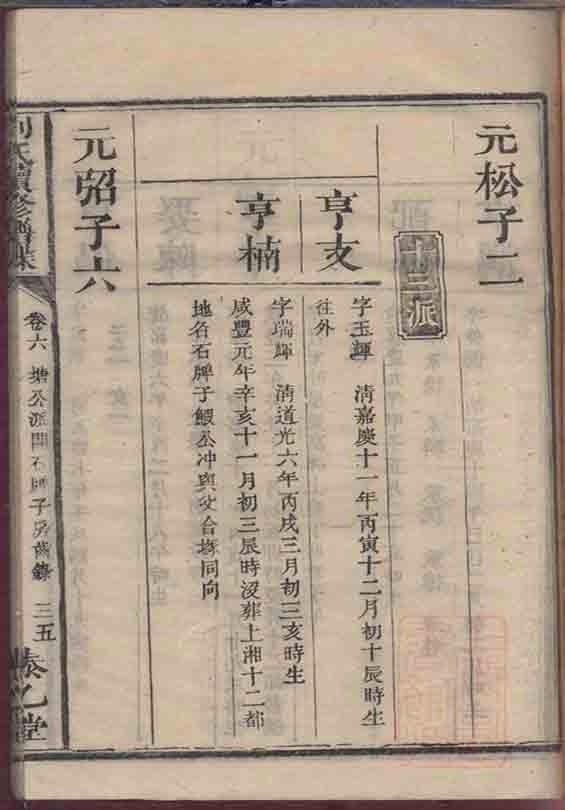 元松子二
十三派
亨支
字玉輝 淸嘉慶十一年丙寅十二月初十辰時生
往外
亨楠
字瑞輝 淸道光六年丙戌三月初三亥時生
咸豐元年辛亥十一月初三辰時沒葬上湘十二都
地名石牌子鰕公冲與父合塚同向
元炤子六
劉氏續修譜牒
卷六 塘公派開石
子房齒錄 三五
泰乙堂